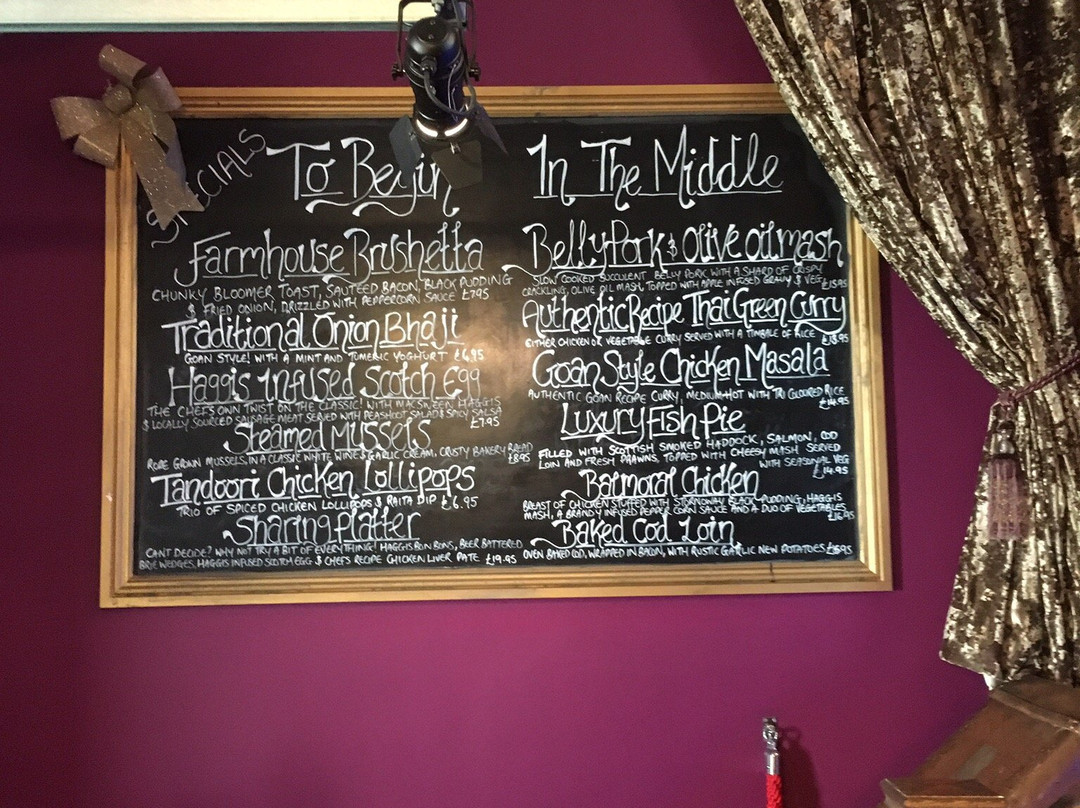 SPECIALS
To Begin
Farmhouse Brushetta
CHUNKY BLOOMER TOAST, SAUTEED BACON, BLACK PUDDING
& FRIED ONION, DRIZZLED WITH PEPPERCORN SAUCE £7.95
Traditional Onion Bhaji
GOAN STYLE! WITH A MINT AND TUMERIC YOGHURT £6.95
Haggis Infused Scotch Egg
THE CHEFS OWN TWIST ON THE CLASSIC! WITH MACSWEEN HAGGIS
& LOCALLY SOURCED SAUSAGE MEAT SERVED WITH PEASHOOT SALAD & SPICY SALSA
£7.95
Steamed Mussels
ROPE GROWN MUSSELS, IN A CLASSIC WHITE WINE & GARLIC CREAM, CRUSTY BAKERY BREAD
£8.95
Tandoori Chicken Lollipops
TRIO OF SPICED CHICKEN LOLLIPOPS & RAITA DIP £6.95
Sharing Platter
CANT DECIDE? WHY NOT TRY A BIT OF EVERYTHING! HAGGIS BON BONS, BEER BATTERED
BRIE WEDGES, HAGGIS INFUSED SCOTCH EGG & CHEFS RECIPE CHICKEN LIVER PATE £19.95
In The Middle
Belly Pork & Olive oil mash
SLOW COOKED SUCCULENT BELLY PORK WITH A SHARD OF CRISPY
CRACKLING, OLIVE OIL MASH, TOPPED WITH APPLE INFUSED GRAVY & VEG £15.95
Authentic Recipe Thai Green Curry
EITHER CHICKEN OR VEGETABLE CURRY SERVED WITH A TIMBALE OF RICE
Goan Style Chicken Masala
AUTHENTIC GOAN RECIPE CURRY, MEDIUM-HOT WITH TRI COLOURED RICE
£14.95
Luxury Fish Pie
FILLED WITH SCOTTISH SMOKED HADDOCK, SALMON, COD
LOIN AND FRESH PRAWNS, TOPPED WITH CHEESY MASH SERVED
WITH SEASONAL VEG
£14.95
Balmoral Chicken
BREAST OF CHICKEN STUFFED WITH STORNOWAY BLACK PUDDING, HAGGIS
MASH, A BRANDY INFUSED PEPPER CORN SAUCE AND A DUO OF VEGETABLES
Baked Cod Loin
OVEN BAKED COD, WRAPPED IN BACON, WITH RUSTIC GARLIC NEW POTATOES